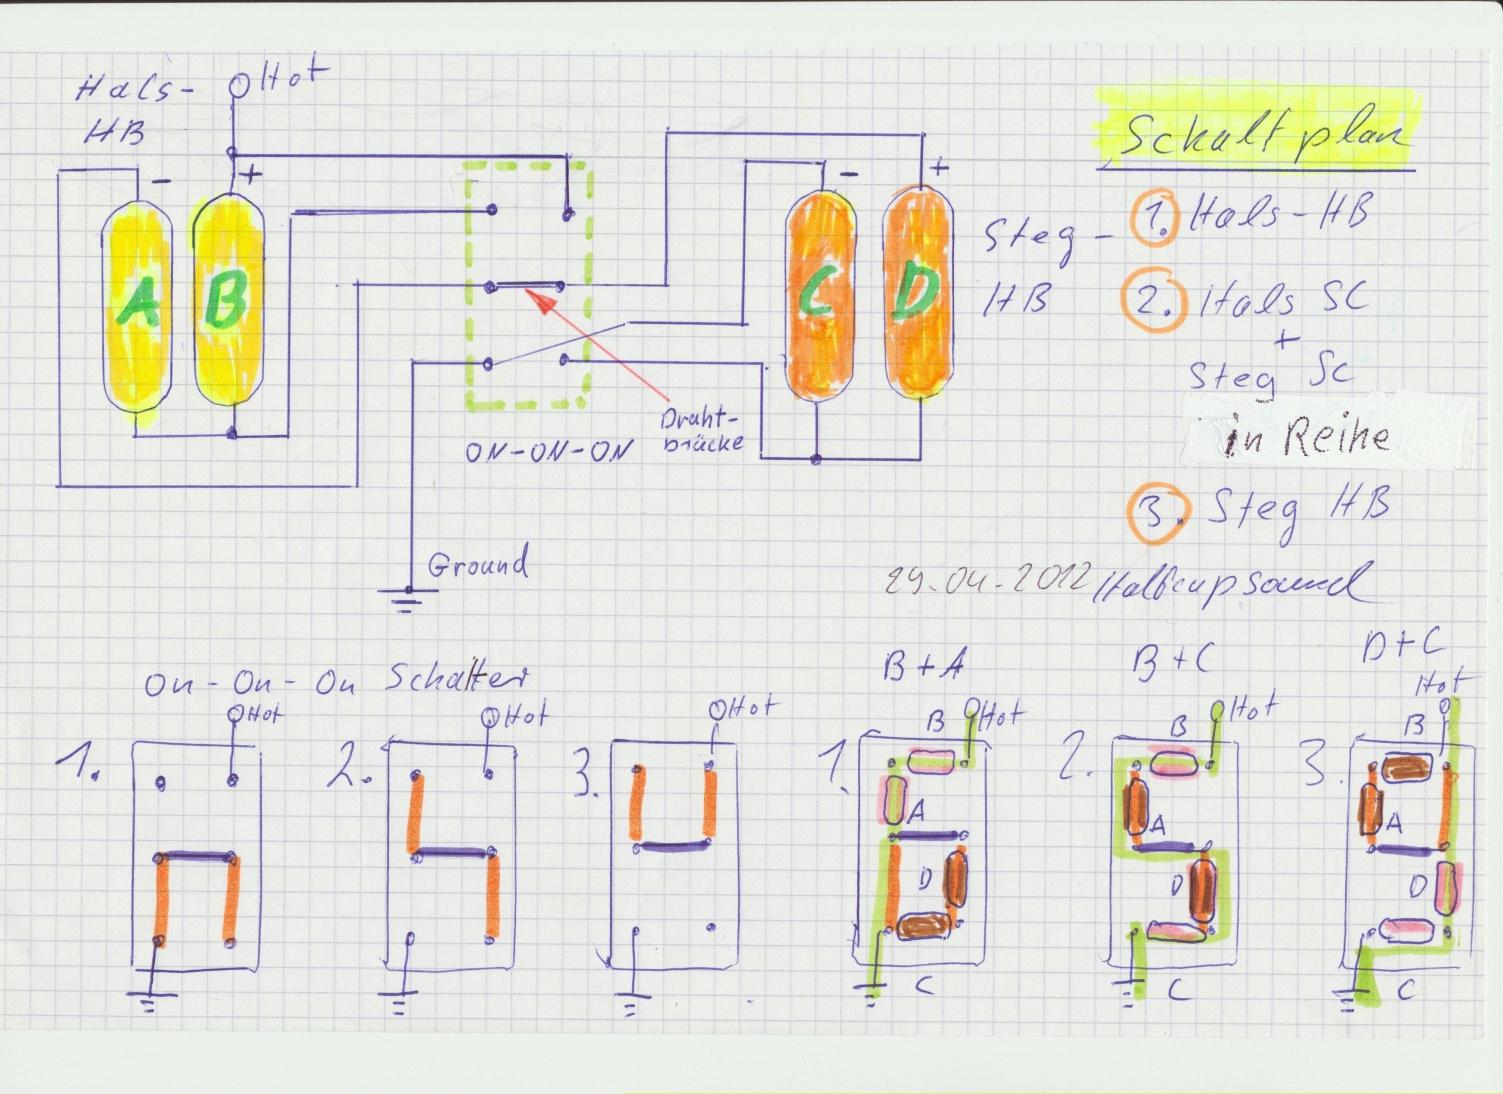 Hals-
HB
Hot
-
+
A
B
ON-ON-ON
Draht-
brücke
Ground
-
+
C
D
Steg-
HB
Schaltplan
1. Hals-HB
2. Hals SC
+
Steg SC
in Reihe
3. Steg HB
29.04.2012 Halfcupsound
On-On-On Schalter
1.
Hot
2.
Hot
3.
Hot
B+A
1.
B
Hot
A
D
C
B+C
2.
B
Hot
A
D
C
D+C
Hot
3.
B
A
D
C